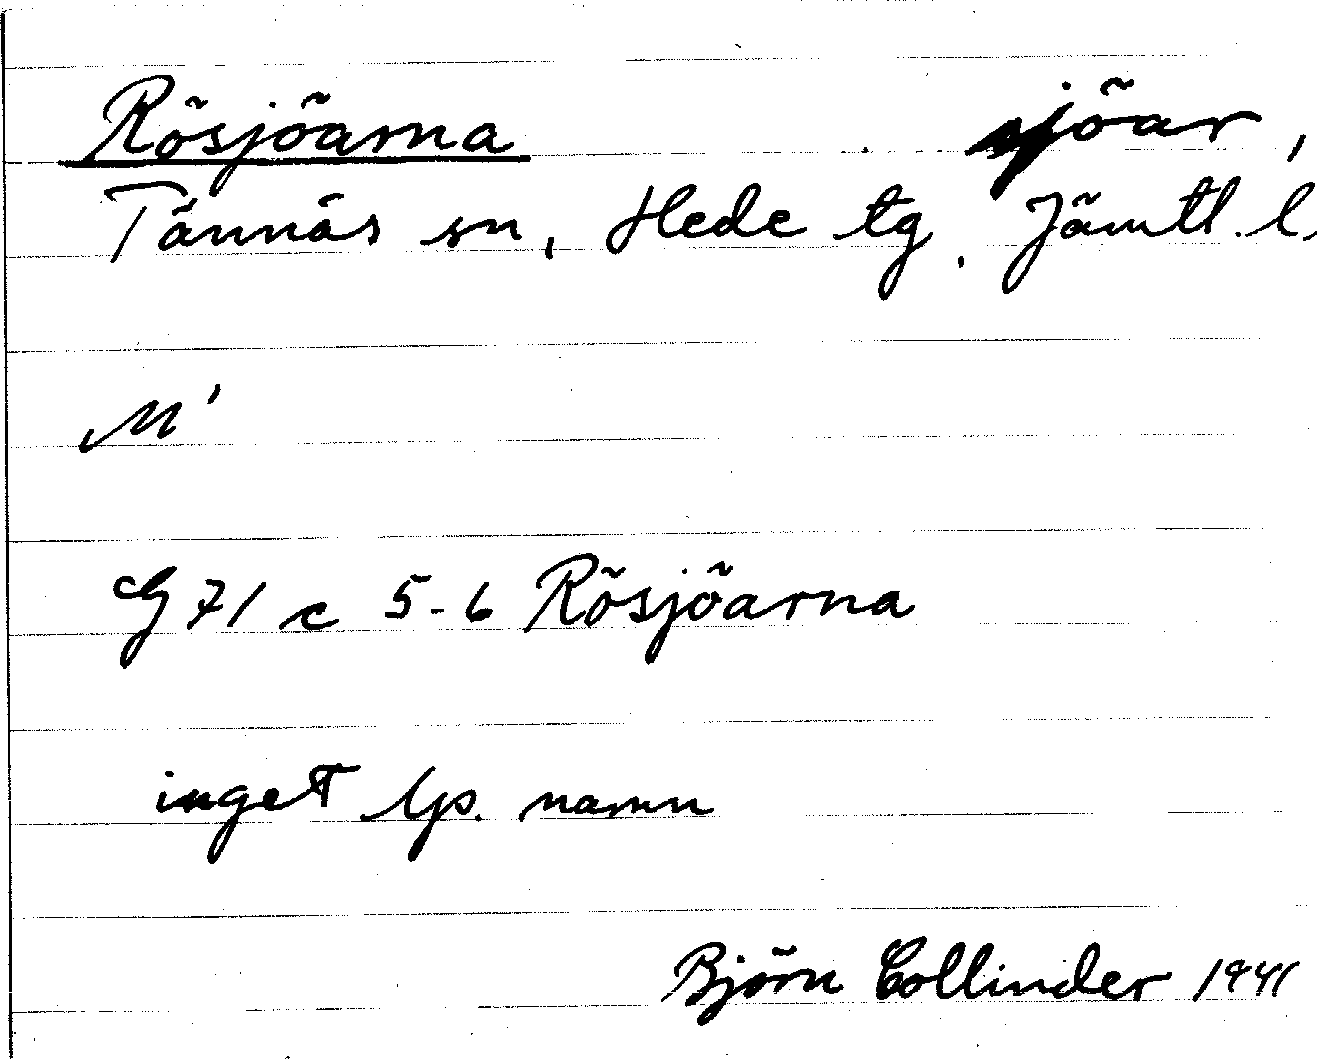 Rösjöarna sjöar,
Tännäs sn, Hede tg. Jämtl. l.
M'
G 71 c 5-6 Rösjöarna
inget lp. namn
Björn Collinder 1941